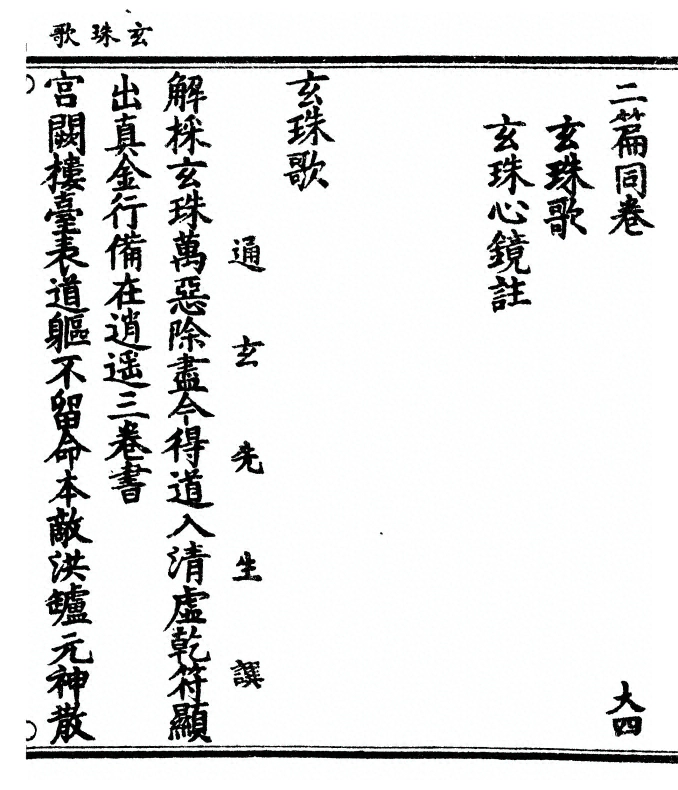 玄珠歌
二篇同卷 大四
玄珠歌
玄珠心鏡註
玄珠歌
通玄先生譔
解採玄珠萬惡除盡令得道入清虛乾符顯
出真金行備在逍遥三卷書
宮闕樓臺表道軀不留命本敵洪罏元神散